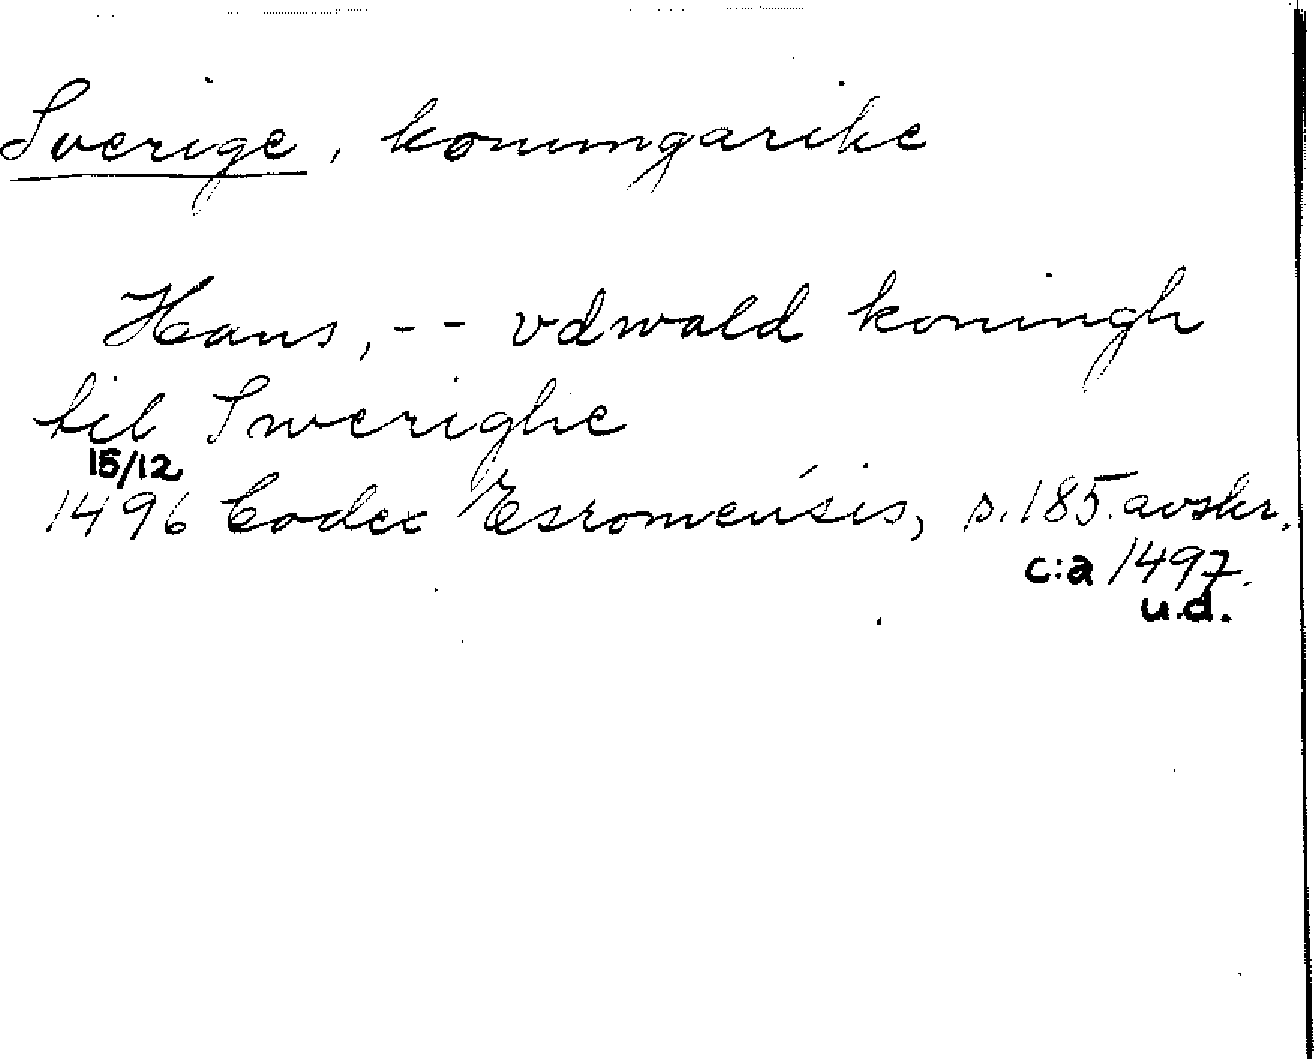 Sverige, konungarike
Hans, -- vdwald koningh
til Swerighe
15/12
1496 Codex Esromensis, s. 185. avskr.
c:a 1497.
u.d.